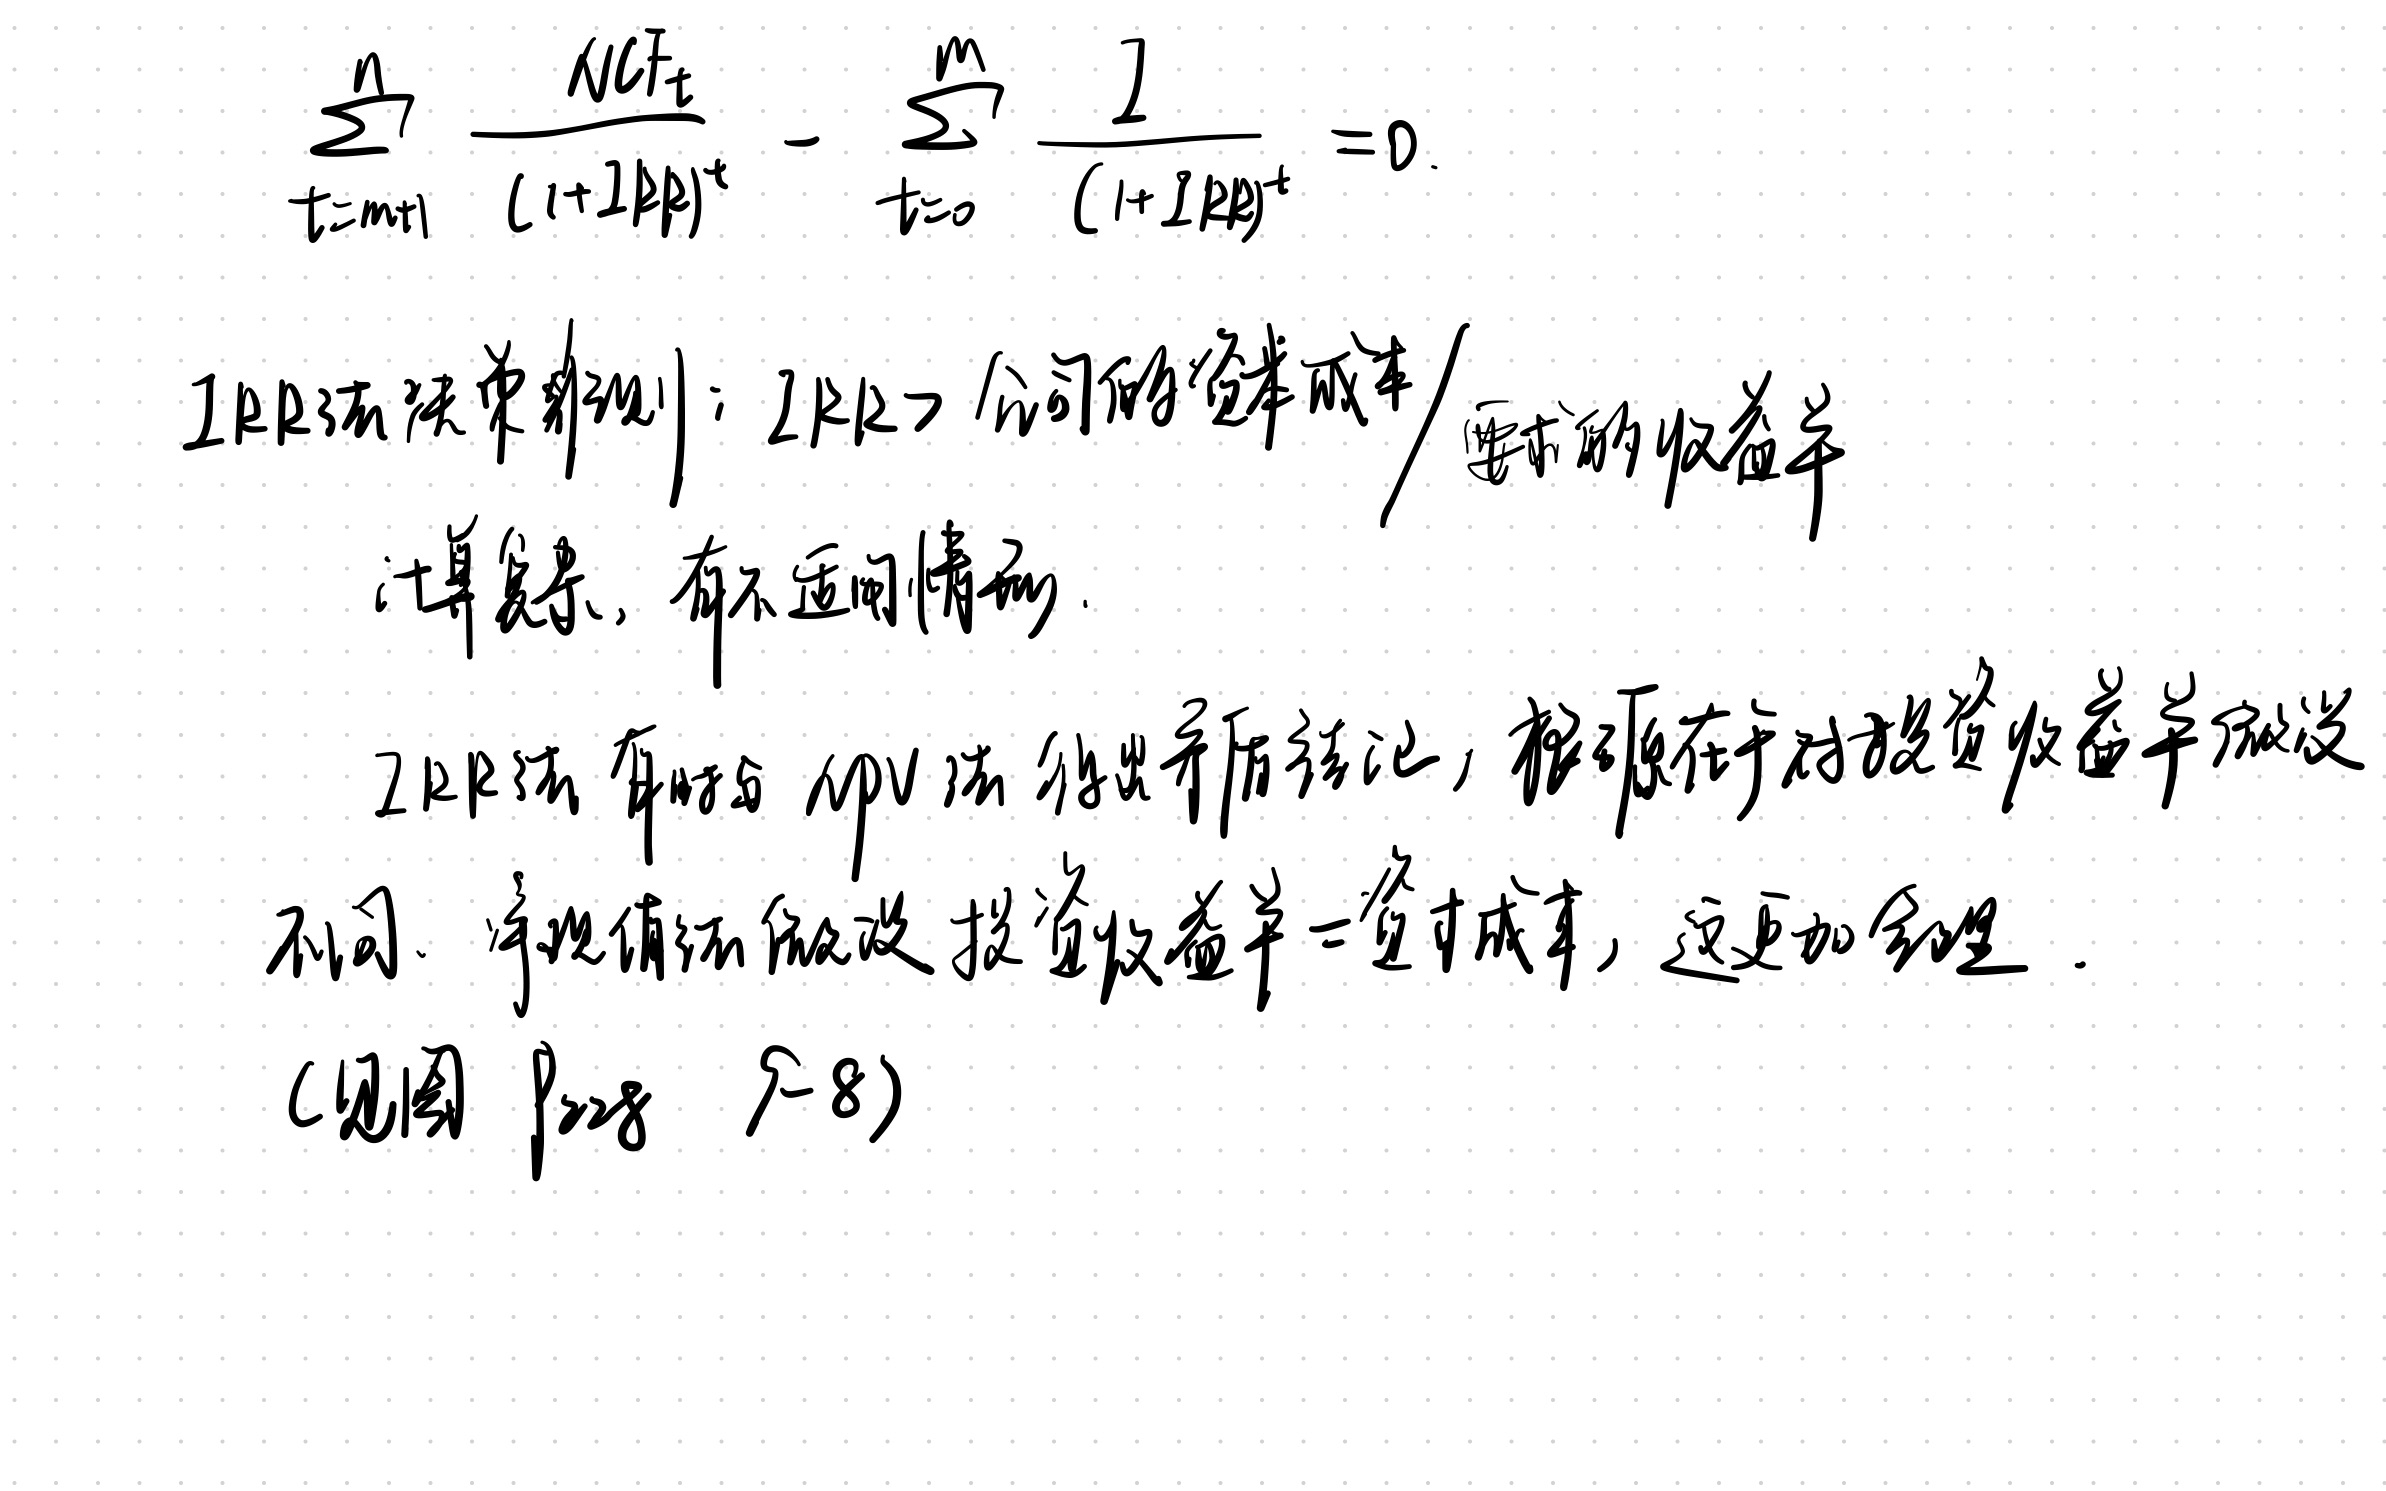 \sum_{t=m+1}^{n} \frac{NCF_t}{(1+IRR)^t} - \sum_{t=0}^{m} \frac{I}{(1+IRR)^t} = 0.
IRR法决策规则: IRR > 公司的资本成本/要求的收益率
计算复杂、有不适的情形.
IRR法有时与NPV法得出矛盾结论, 根源在于对再投资收益率假设
不同. 净现值法假设投资收益率=资本成本, 这更加合理.
( 周图 P228 7-8)